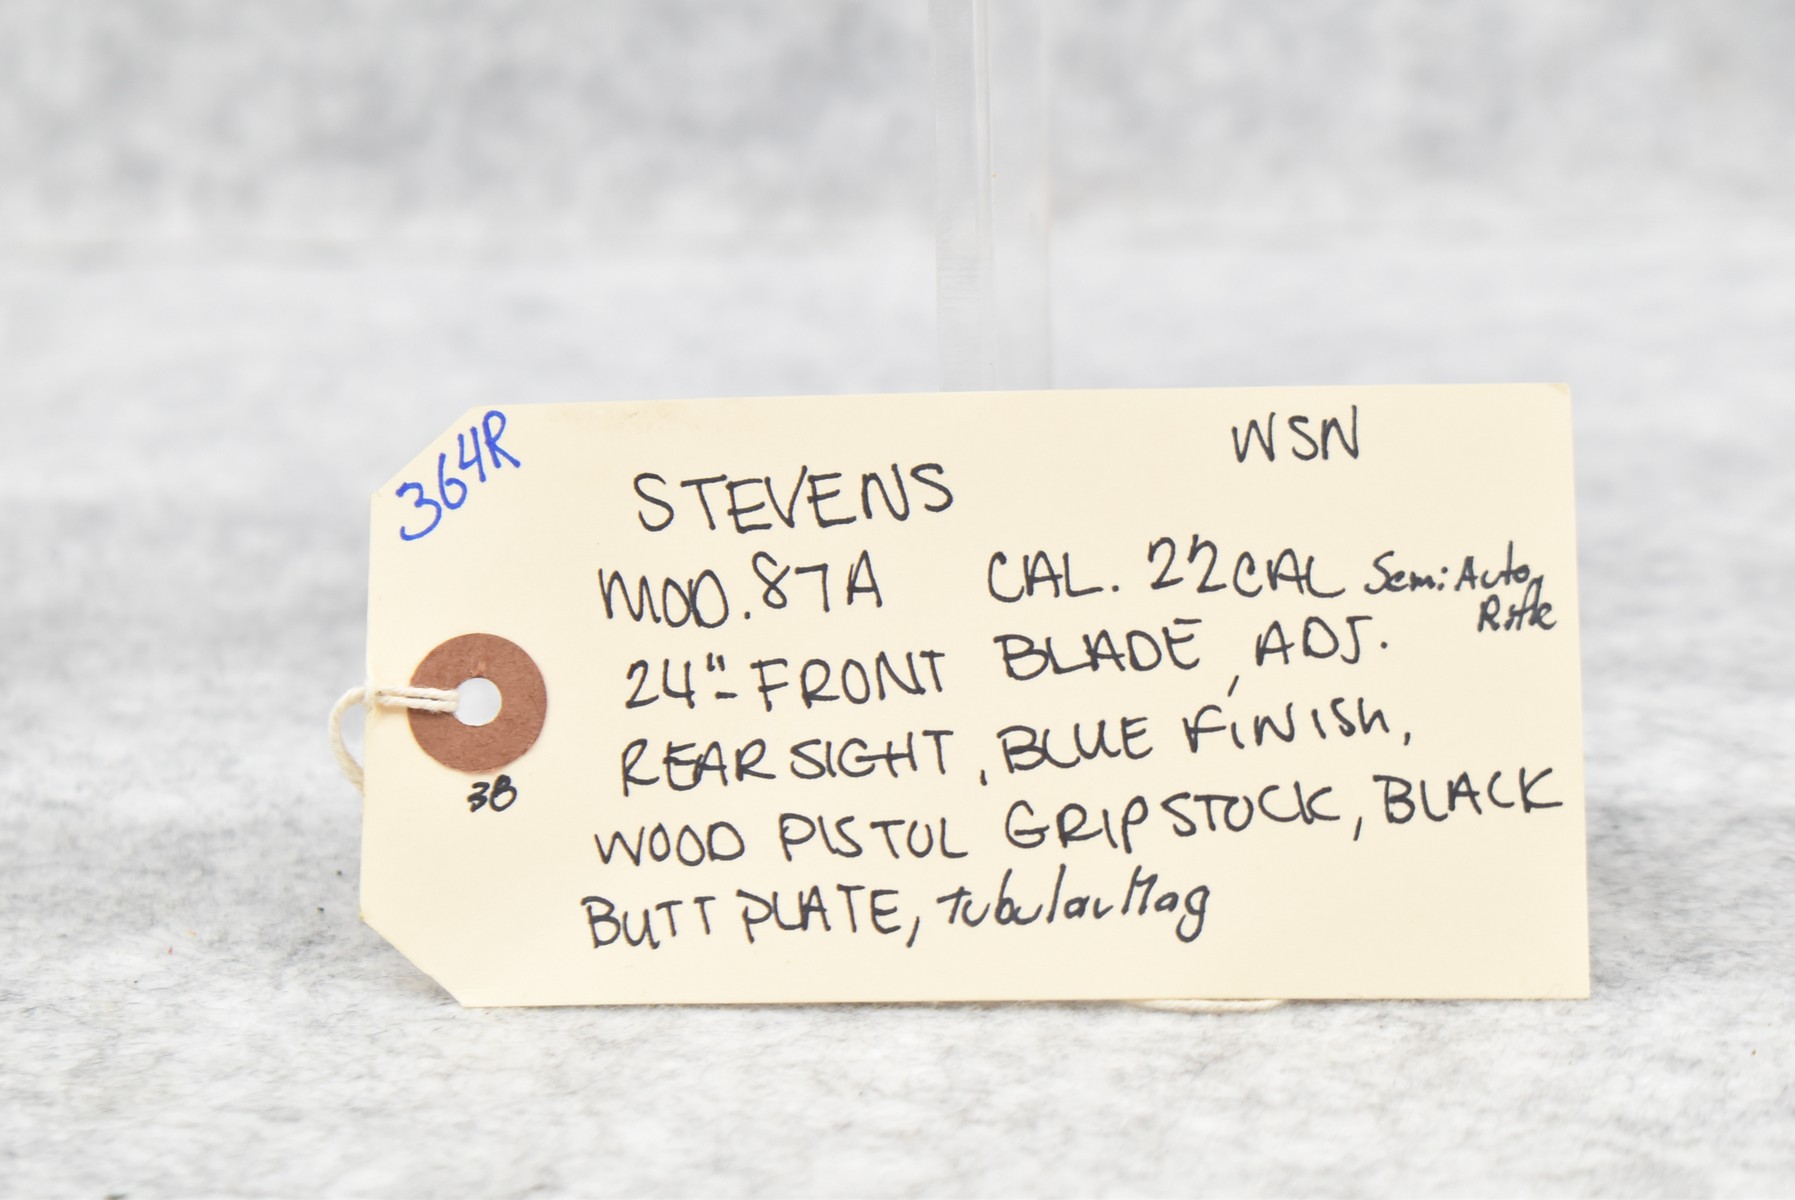 364R
WSN
STEVENS
MOD. 87A CAL. 22CAL Semi Auto
Rifle
24"-FRONT BLADE, ADJ.
REAR SIGHT, BLUE FINISH,
WOOD PISTOL GRIP STOCK, BLACK
BUTT PLATE, tubular Mag
38